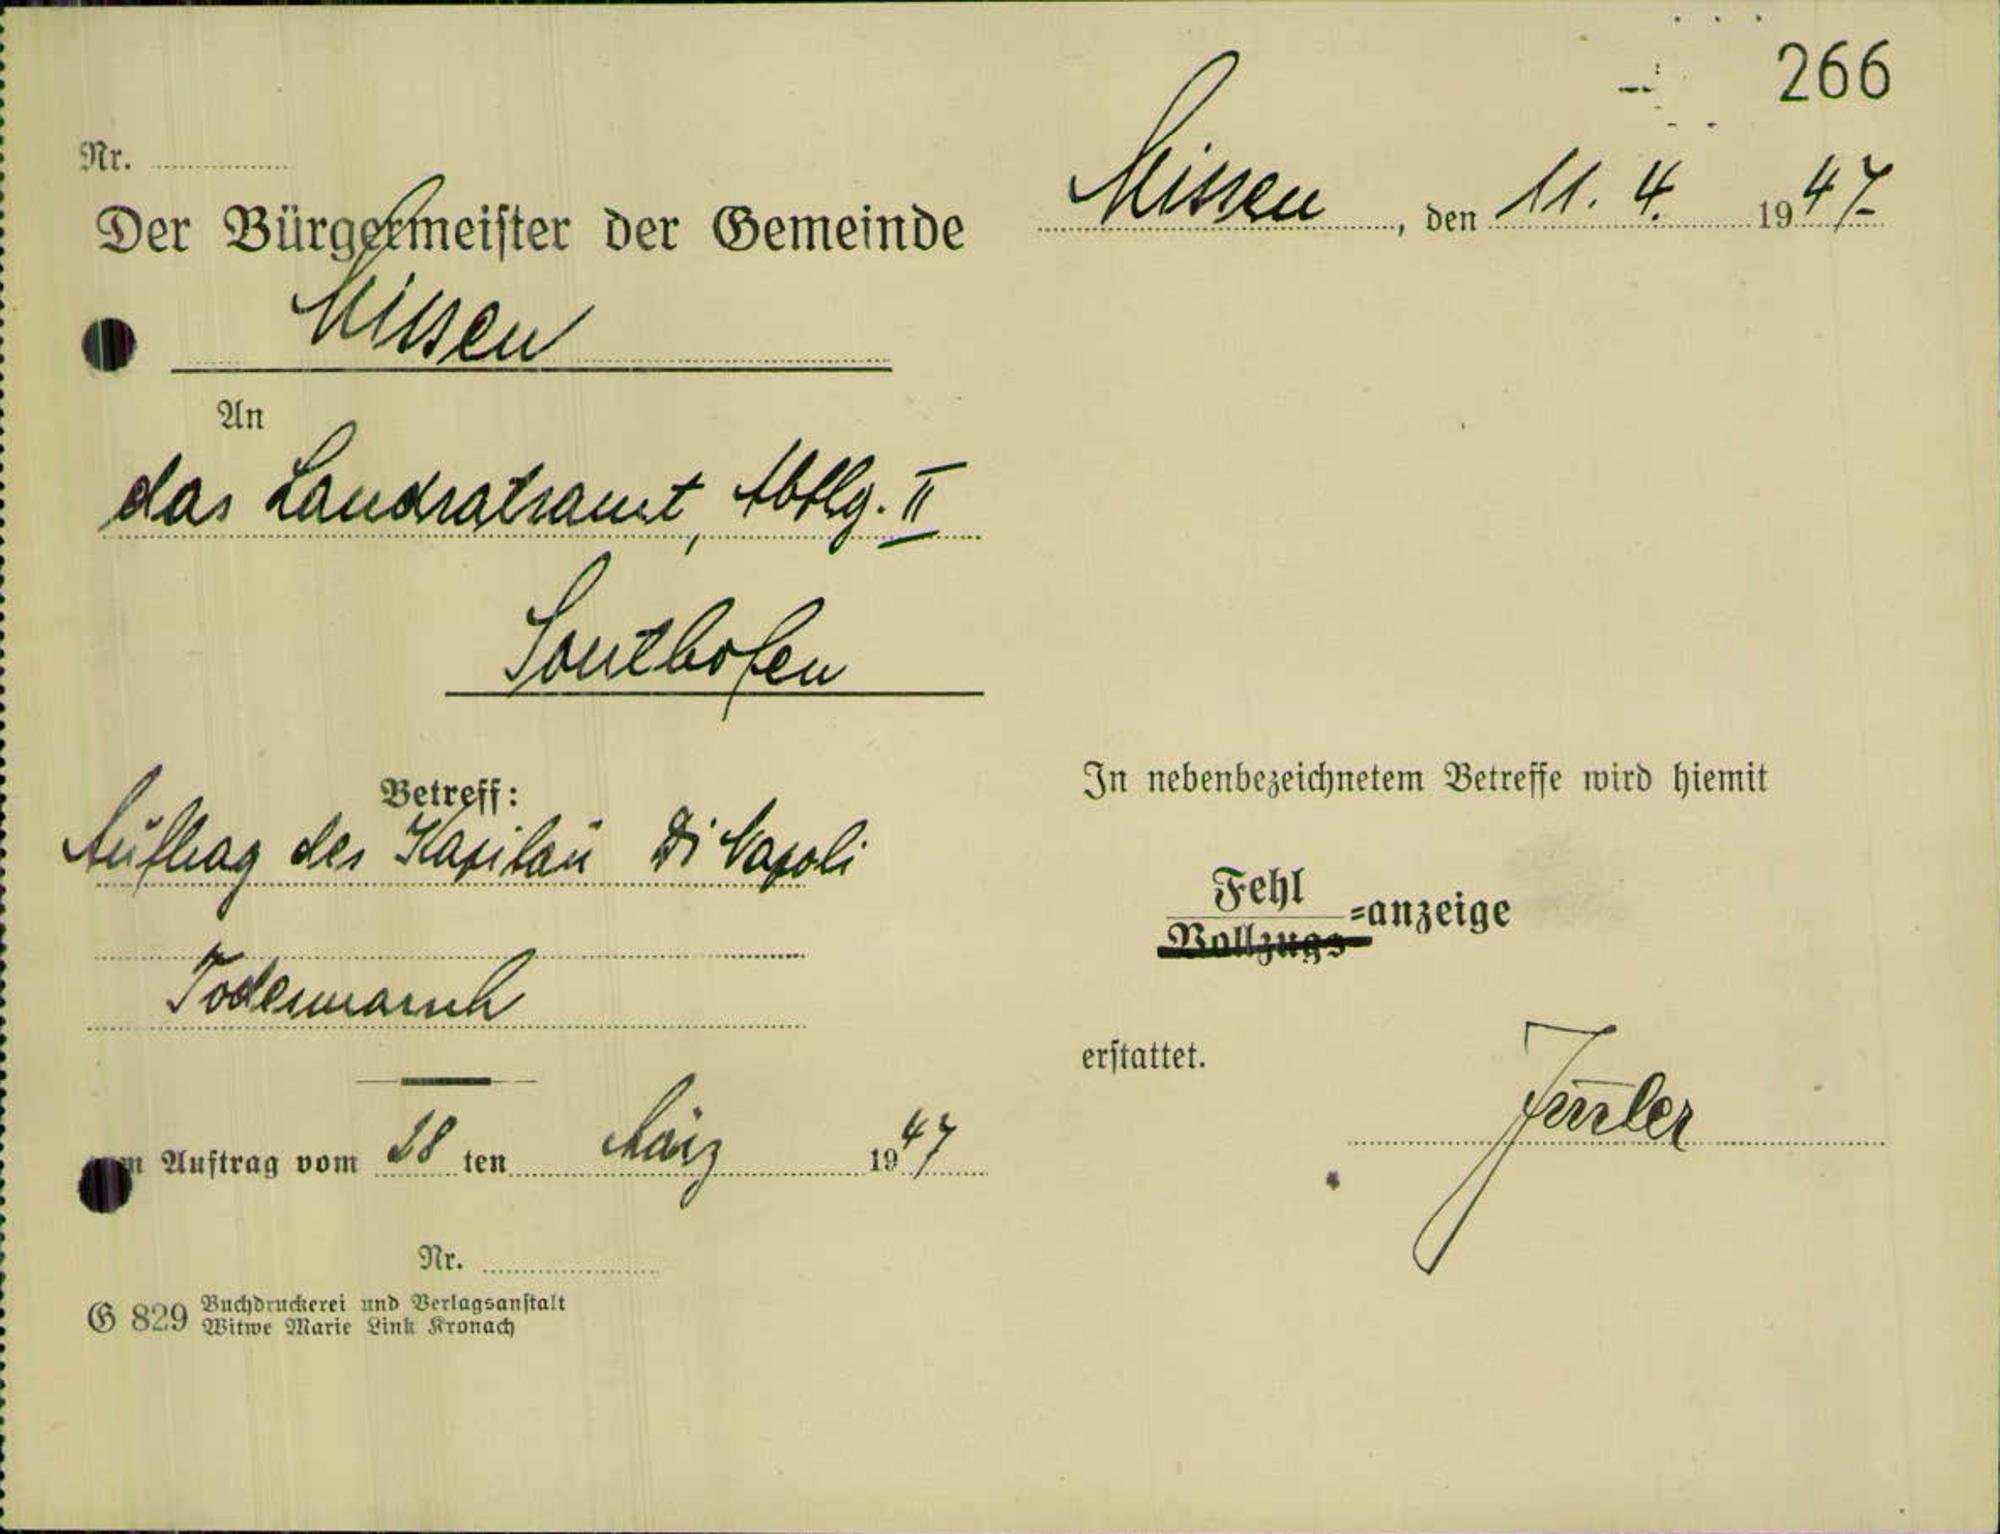 266
Nr.
Missen, den 11. 4. 1947
Der Bürgermeister der Gemeinde
Missen
An
das Landratsamt, Abtlg. II
Sonthofen
Betreff:
Auftrag des Kapitän Di Napoli
Todesmarsch
zum Auftrag vom 28 ten März 1947
Nr.
G 829 Buchdruckerei und Verlagsanstalt
Witwe Marie Link Kronach
In nebenbezeichnetem Betreffe wird hiemit
Fehl
Vollzugs=anzeige
erstattet.